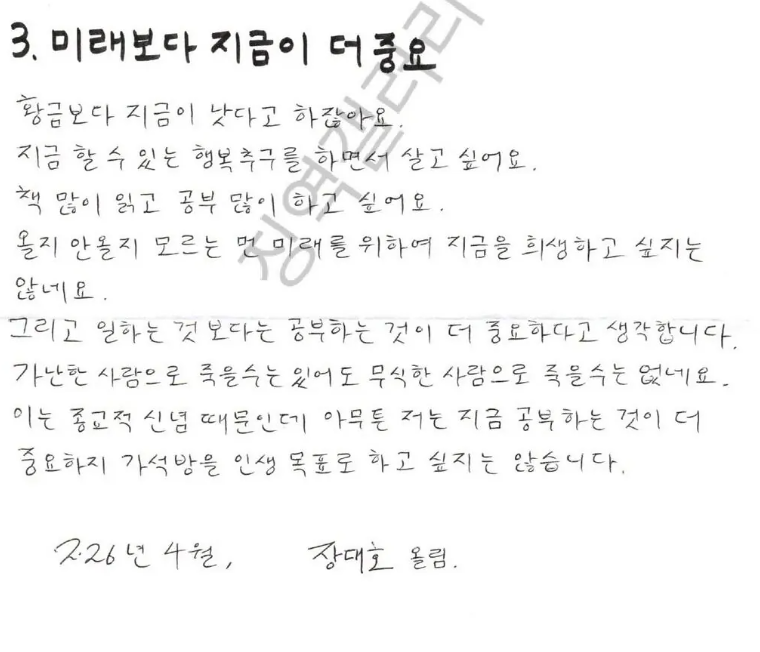 3. 미래보다 지금이 더 중요
황금보다 지금이 낫다고 하잖아요.
지금 할 수 있는 행복추구를 하면서 살고 싶어요.
책 많이 읽고 공부 많이 하고 싶어요.
올지 안올지 모르는 먼 미래를 위하여 지금을 희생하고 싶지는
않네요.
그리고 일하는 것 보다는 공부하는 것이 더 중요하다고 생각합니다.
가난한 사람으로 죽을수는 있어도 무식한 사람으로 죽을수는 없네요.
이는 종교적 신념 때문인데 아무튼 저는 지금 공부하는 것이 더
중요하지 가석방을 인생 목표로 하고 싶지는 않습니다.
2.26년 4월, 장대호 올림.
징역갤러리